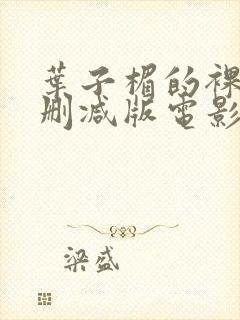 葉子楣的裸
刪減版電影
梁盛